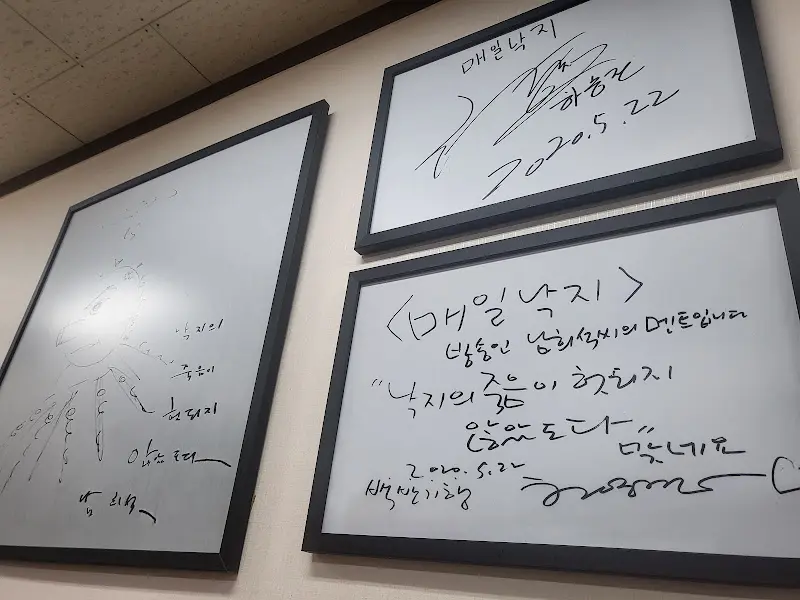 낙지의
죽음이
헛되지
않았도다
남희석
매일낙지
하승진
2020.5.22
<매일낙지>
방송인 남희석씨의 멘트입니다
"낙지의 죽음이 헛되지
않았도다"
맞네요
2020.5.22
백반기행